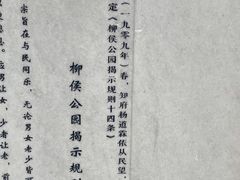 (一九零九年)春,知府杨道霖依从民望,
定《柳侯公园揭示规则十四条》
柳侯公园揭示规
宗旨在与民同乐,无论男女老少皆
息。应男让女,少者让老,前